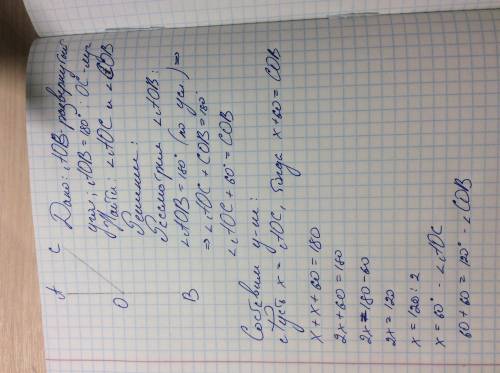 A C
O
B
Дано: ∠AOB-развернутый
угол; ∠AOB = 180°; OC-луч
Найти: ∠AOC и ∠COB
Решение:
Рассмотрим ∠AOB:
∠AOB = 180° (по усл.) =>
=> ∠AOC + COB = 180°
∠AOC + 60° = COB
Составим у-ие:
Пусть x = ∠AOC, тогда x+60 = COB
x + x + 60 = 180
2x + 60 = 180
2x = 180 - 60
2x = 120
x = 120 : 2
x = 60° - ∠AOC
60 + 60 = 120° - ∠COB